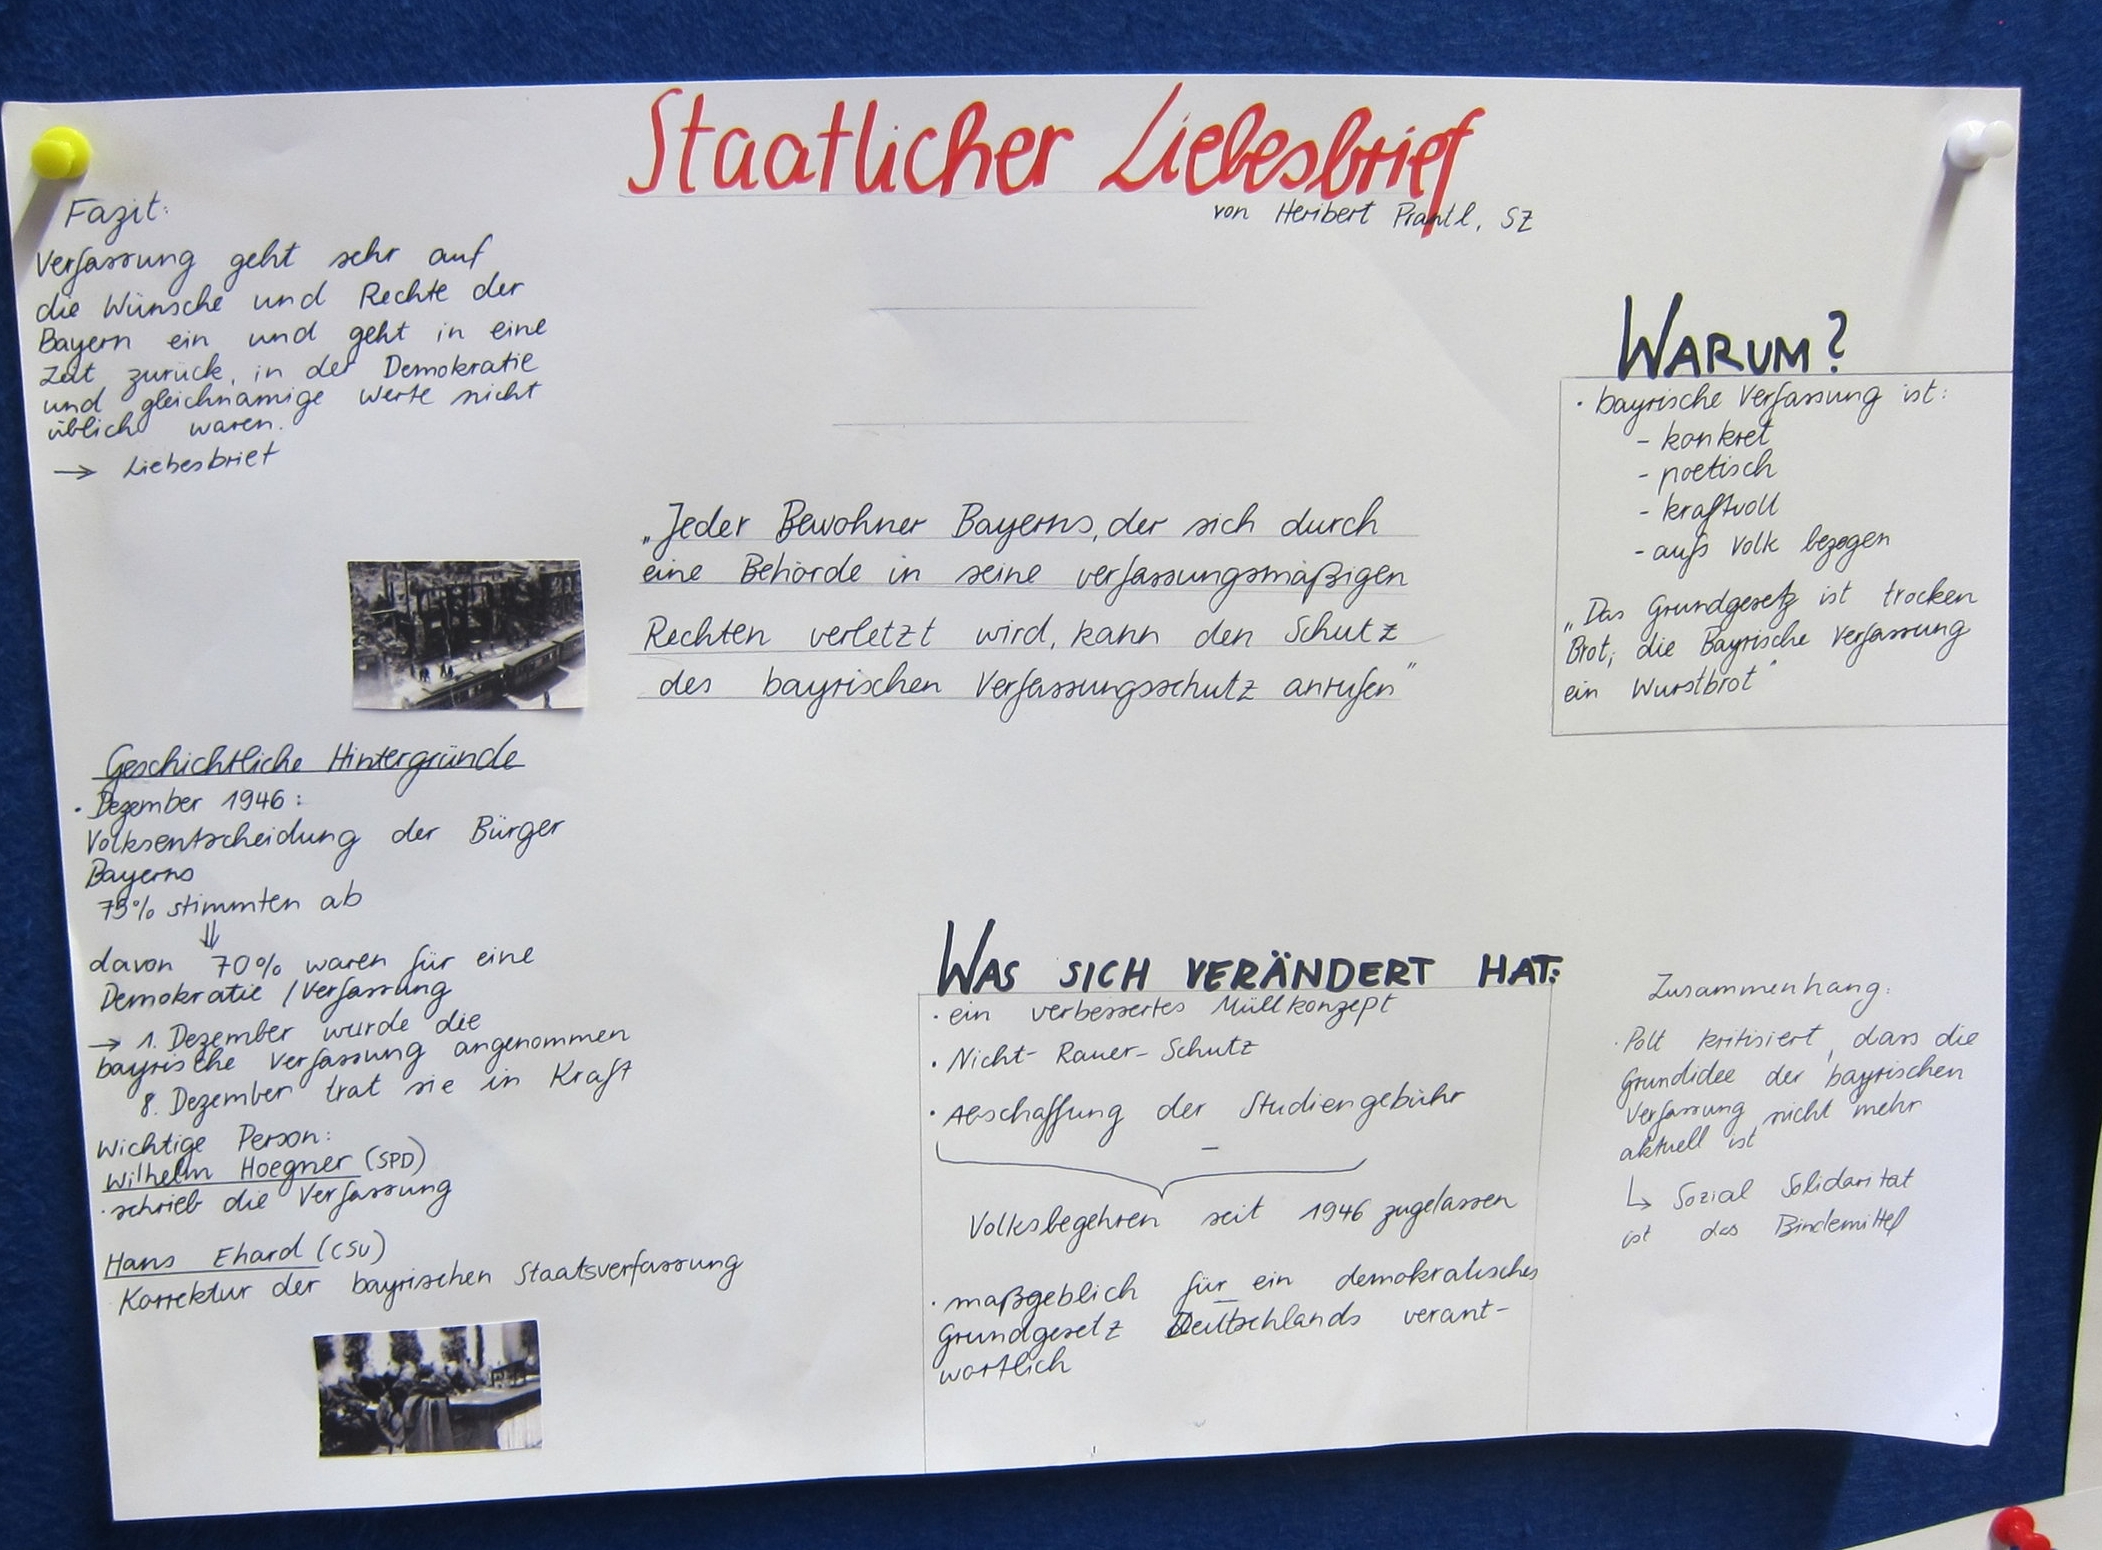 Staatlicher Liebesbrief
von Heribert Prantl, SZ
Fazit:
Verfassung geht sehr auf
die Wünsche und Rechte der
Bayern ein und geht in eine
Zeit zurück, in der Demokratie
und gleichnamige Werte nicht
üblich waren.
→ Liebesbrief
Geschichtliche Hintergründe
· Dezember 1946:
Volksentscheidung der Bürger
Bayerns
75% stimmten ab
⇓
davon 70% waren für eine
Demokratie / Verfassung
→ 1. Dezember wurde die
bayrische Verfassung angenommen
8. Dezember trat sie in Kraft
Wichtige Person:
Wilhelm Hoegner (SPD)
· schrieb die Verfassung
Hans Ehard (CSU)
Korrektur der bayrischen Staatsverfassung
„Jeder Bewohner Bayerns, der sich durch
eine Behörde in seine verfassungsmäßigen
Rechten verletzt wird, kann den Schutz
des bayrischen Verfassungsschutz anrufen"
WARUM?
· bayrische Verfassung ist:
- konkret
- poetisch
- kraftvoll
- aufs Volk bezogen
„Das Grundgesetz ist trocken
Brot; die Bayrische Verfassung
ein Wurstbrot"
WAS SICH VERÄNDERT HAT:
· ein verbessertes Müllkonzept
· Nicht-Rauer-Schutz
· Abschaffung der Studiengebühr
Volksbegehren seit 1946 zugelassen
· maßgeblich für ein demokratisches
Grundgesetz Deutschlands verant-
wortlich
Zusammenhang:
· Polt kritisiert, dass die
Grundidee der bayrischen
Verfassung nicht mehr
aktuell ist
↳ Sozial Solidarität
ist das Bindemittel